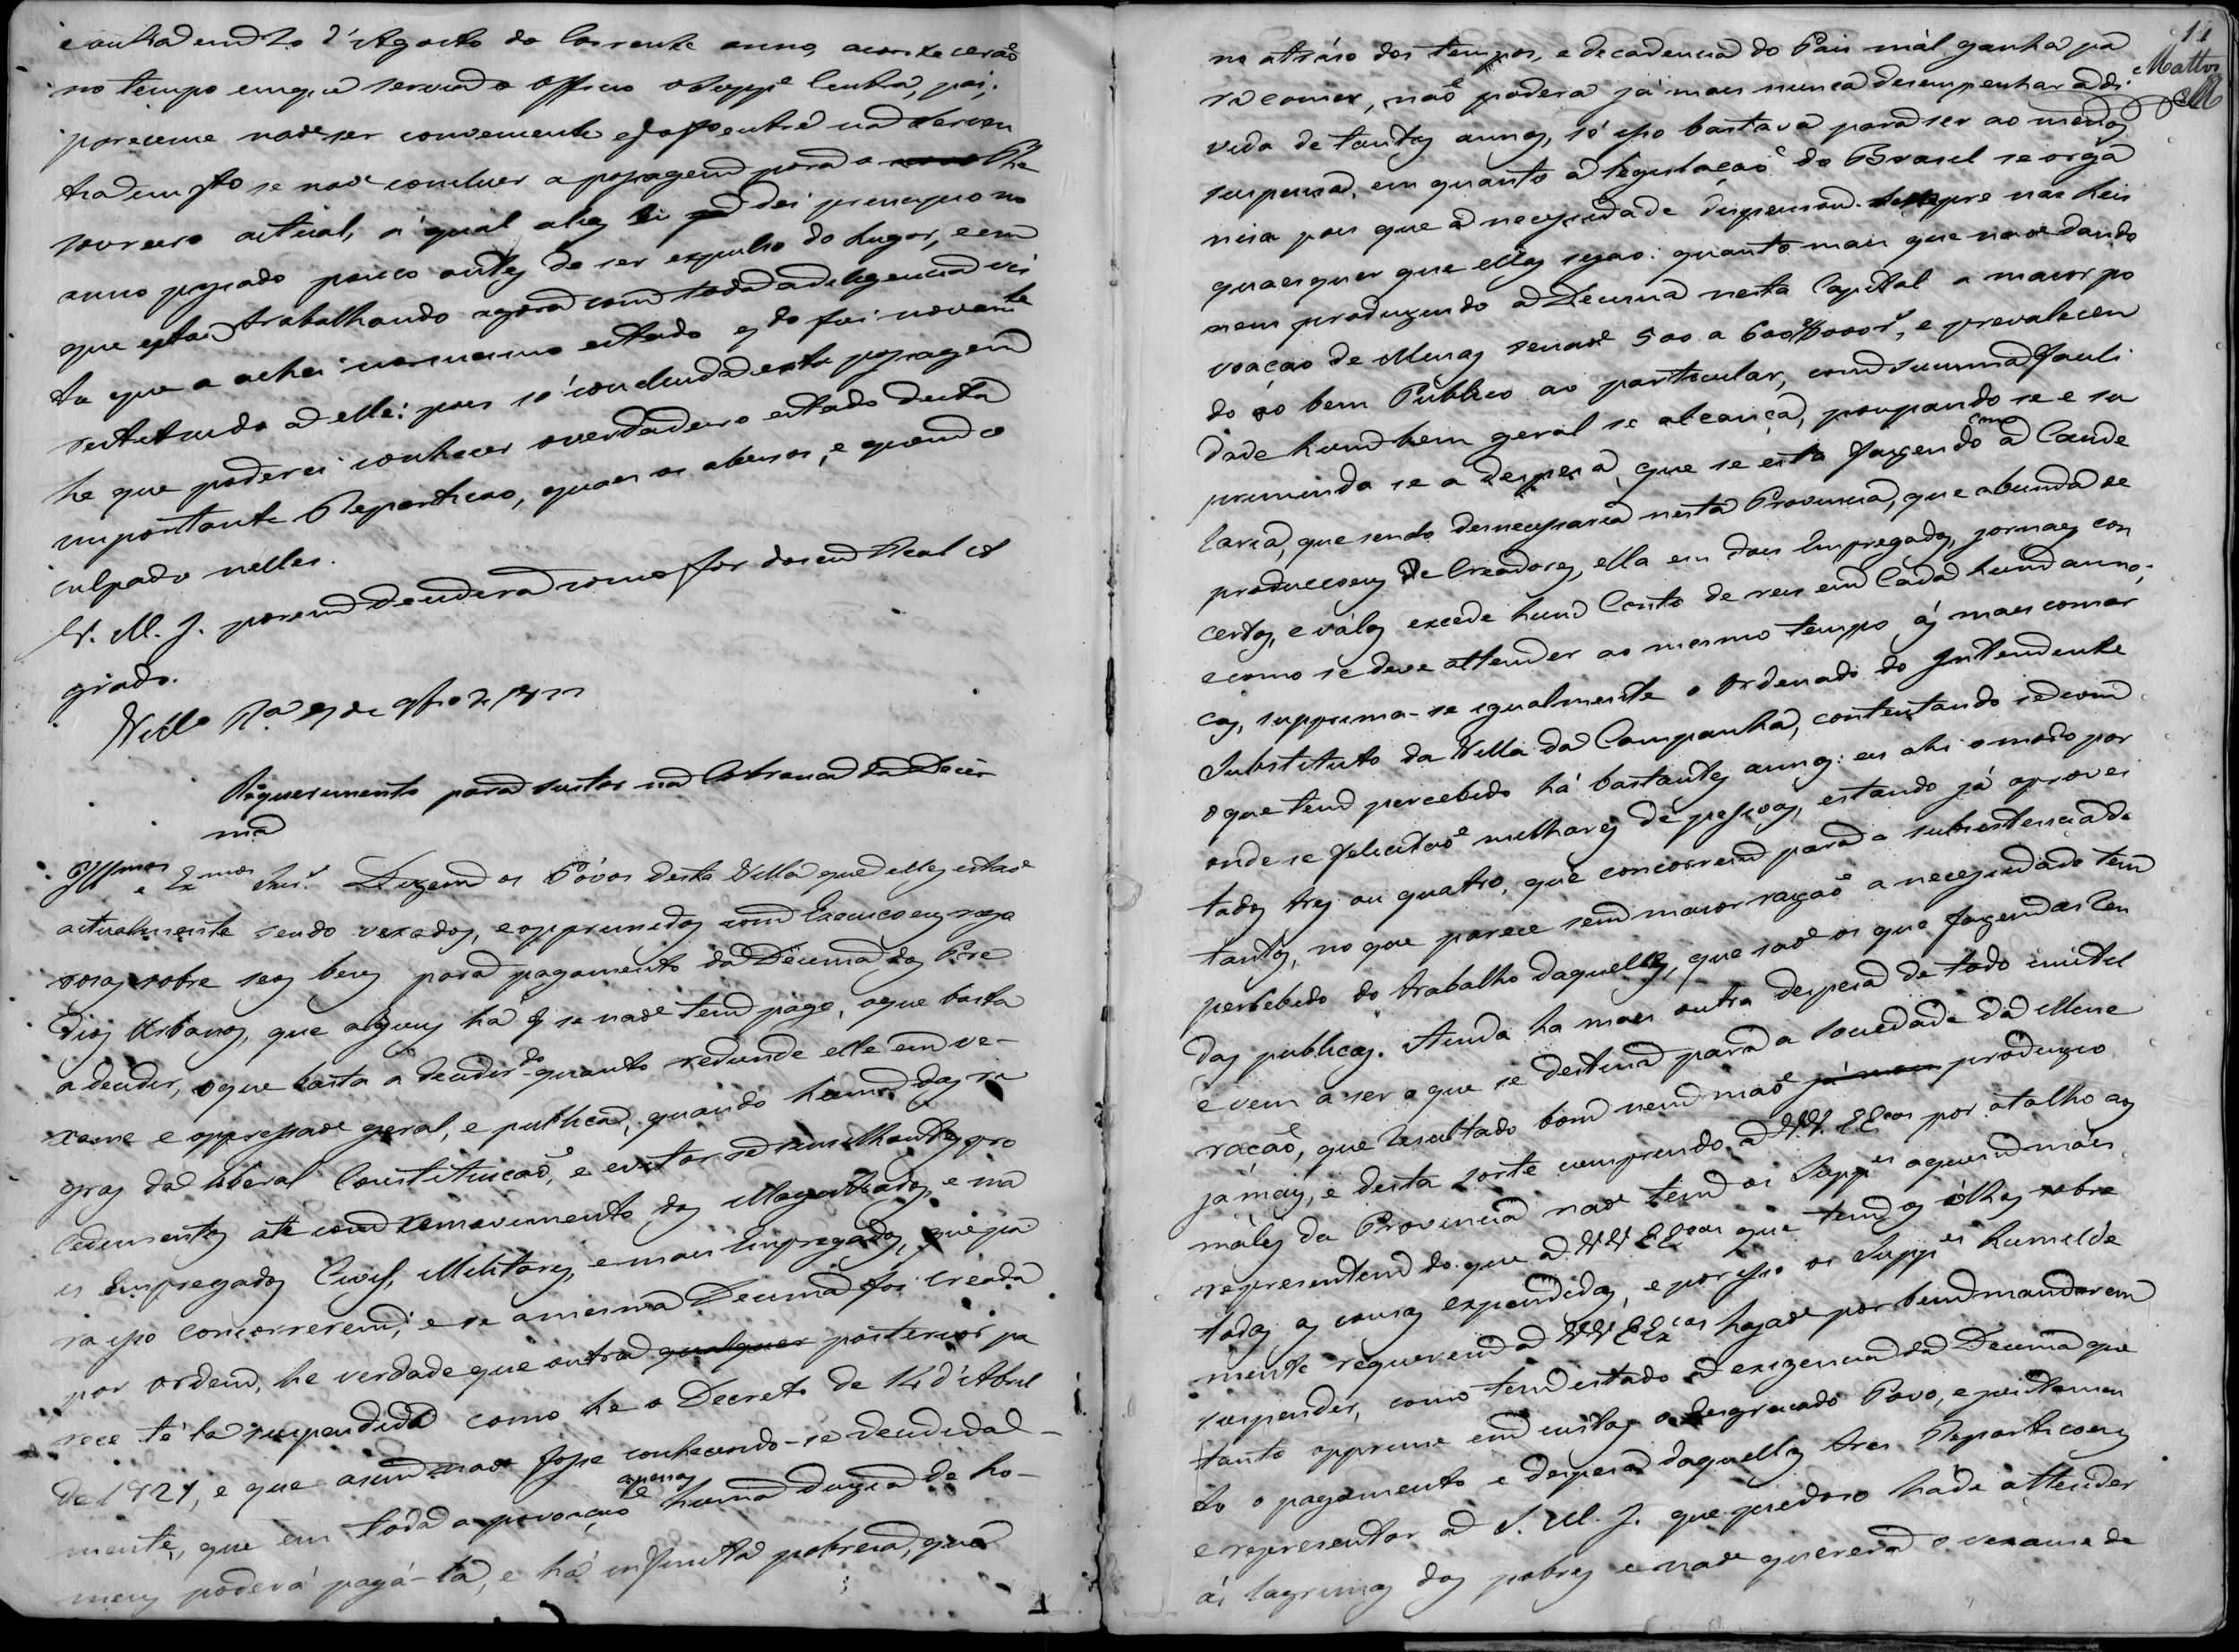 e outra em do d'Agosto do Corrente anno, acontecerão
no tempo em q. servia o officio o Supp.e Cunha, pois,
pareceme não ser conveniente q. elle entre na Serven
tia em q.to se não concluir a passagem para o The
soureiro actual, á qual dei principio no
anno passado pouco antes de ser expulso do lugar, e em
que estou trabalhando agora com toda a deligencia vis
to que a achei no mesmo estado q.do fui novam.te
restituido a elle: pois só concluida esta passagem
he que poderei conhecer o verdadeiro estado desta
importante Repartição, quaes os abusos, e quem o
culpado nelles.
V. M. I. porem decidirá como for do seu Real A
grado.
Villa R.a de de
Requerimento para sustar na Cobrança da Deci
ma
Ill.mos e Ex.mos Snr.s Dizem os Póvos desta Villa que elles estão
actualmente sendo vexados, e opprimidos com Execuçoens rigo
rosas sobre seos bens para pagamento da Decima dos Pre
dios Urbanos, que alguns ha q. se não tem pago, o que basta
a decidir, o que basta a decidir-do quanto redunde elle em ve-
xame e oppressão geral, e publica, quando huma das re
gras da liberal Constituição, e evitar se semelhantes pro
cedimentos até com removimento dos Magistrados, e ma
is Empregados Civis, Militares, e mais Empregados, que pa
ra isso concorrerem; e se a mesma Decima foi creada
por ordem, he verdade que outra qualquer posterior pa
rece tê-la suspendida como he o Decreto de 14 d'Abril
de 1821, e que assim não fosse conhecendo-se decidida-
mente, que em toda a povoação apenas huma duzia de ho-
mens poderá pagá-la, e há infinita pobreza, que
11
Mattos
no atrázo dos tempos, e decadencia do Pais mál ganha pa
ra comer, não poderá já mais nunca desempenhar a di
vida de tantos annos, só isso bastava para ser ao menos
suspensa, em quanto a legislação do Brasil se orga
nisa pois que a necessidade dispensou sempre nas leis
quaesquer que ellas sejão: quanto mais que não dando
nem produzindo a Decima nesta Capital a maior po
voação de Minas senão 500 a 600$000 r.s, e prevalecen
do o bem Público ao particular, com summa facili
dade hum bem geral se alcança, poupando se e su
primindo se a despesa, que se está fazendo com a Caude
laria, que sendo desnecessaria nesta Provincia, que abunda de
producçoens de Creadores, ella em dous Empregados, jornaes con
certos, e válos excede hum Conto de reis em cada hum anno;
e como se deve attender ao mesmo tempo ás mais comar
cas, supprima-se igualmente o Ordenado do Intendente
Substituto da Villa da Campanha, contentando se com
o que tem percebido há bastantes annos: eis ahi o modo por
onde se felicitão milhares de pessoas, estando já aprovei
tados tres ou quatro, que concorrem para a subsistencia de
tantos, no que parece sem maior razão a necessidade tem
percebido do trabalho daquelles, que são os que fazem as ren
das publicas. Ainda ha mais outra despesa de todo inutil
e vem a ser o que se destina para a Sociedade da Mine
ração, que resultado bom nem máo já mais produzio
jámais, e desta sorte cumprindo a VV. EE.cas por atalho aos
máles da Provincia não tem os Supp.es aquem mais
representem do que a VV EE.cas que tem os ólhos sobre
todas as cousas expendidas, e por isso os Supp.es humilde
mente requerem a VV EEx.cas hajão por bem mandarem
suspender, como tem estado a exigencia da Decima que
tanto opprime em custas o desgraçado Povo, e juntamen
te o pagamento e despesa daquellas tres Repartiçoens
e representar a S. M. I. que piedoso háde attender
ás lagrimas dos pobres e não quererá o vexame de